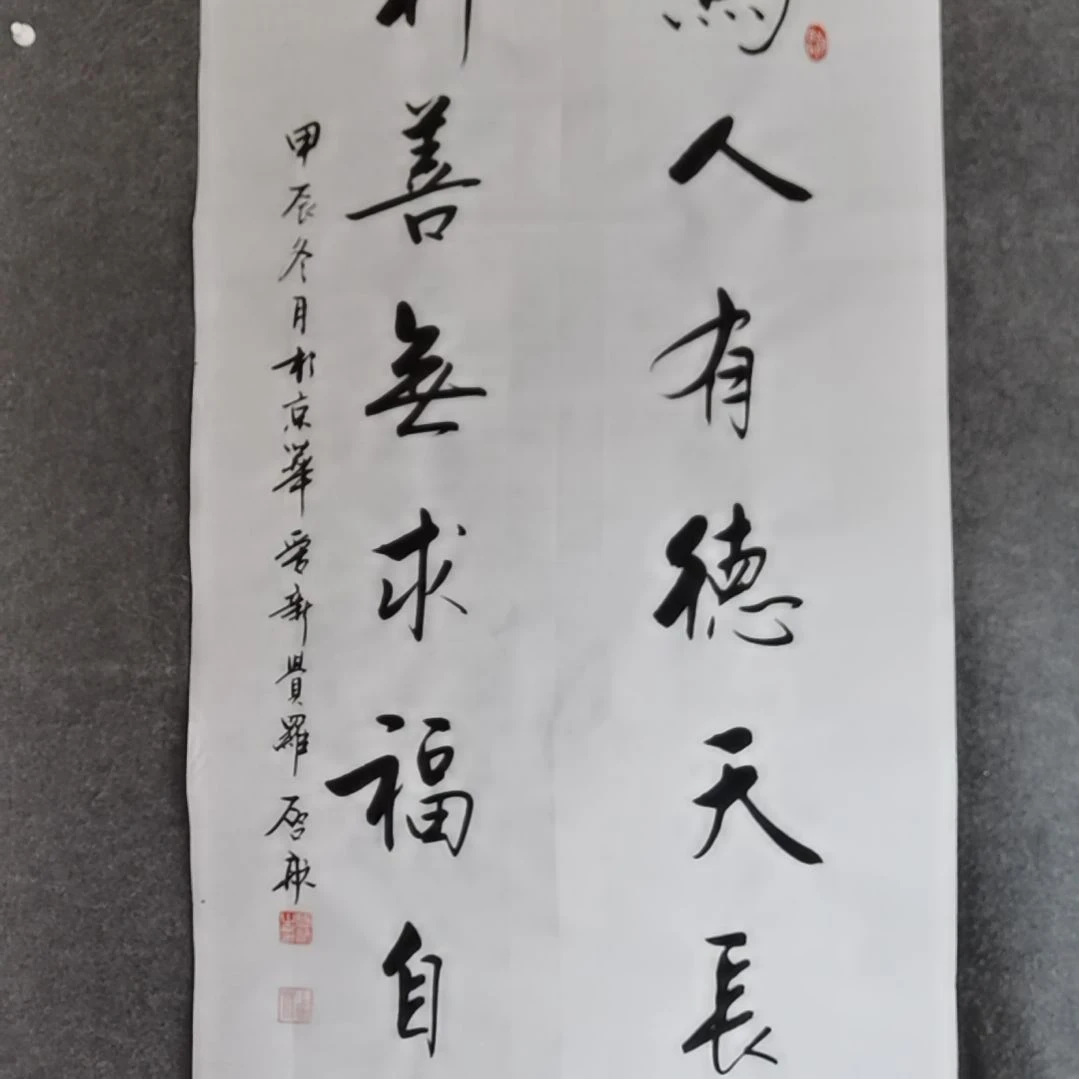 為人有德天長
行善無求福自
甲辰冬月於京華 愛新覺羅 啓